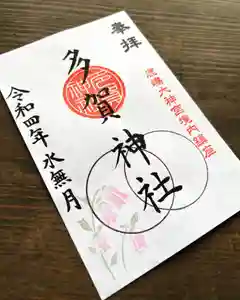 奉拝
鹿嶋大神宮境内鎮座
多賀神社
令和四年 水無月